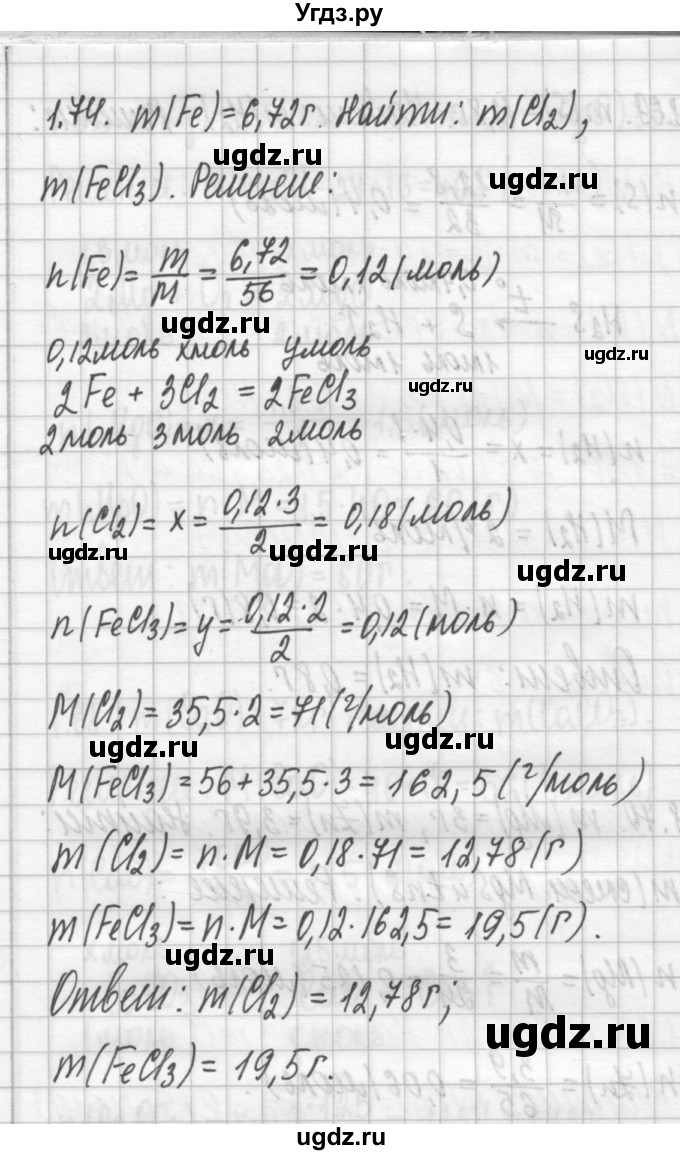 Угдз.ру
1.74. m(Fe)=6,72г. Найти: m(Cl₂),
ugdz.ru
m(FeCl₃). Решение:
n(Fe)= m/M = 6,72/56 = 0,12(моль)
ugdz.ru
0,12моль xмоль yмоль
ugdz.ru
2Fe + 3Cl₂ = 2FeCl₃
ugdz.ru
2моль 3моль 2моль
n(Cl₂)= x= 0,12·3/2 = 0,18(моль)
ugdz.ru ugdz.ru
ugdz.ru
n(FeCl₃)= y= 0,12·2/2 =0,12(моль)
M(Cl₂)= 35,5·2=71(г/моль)
ugdz.ru ugdz.ru
M(FeCl₃)=56+35,5·3= 162,5(г/моль)
m(Cl₂)= n·M= 0,18·71= 12,78(г)
m(FeCl₃)= n·M= 0,12·162,5= 19,5(г).
ugdz.ru
Ответ: m(Cl₂) = 12,78г;
ugdz.ru
m(FeCl₃) = 19,5г.
ugdz.ru